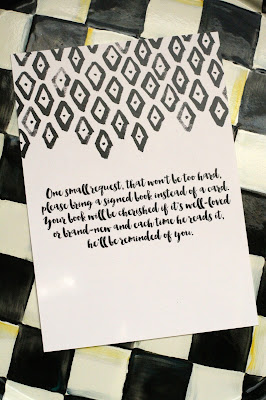 One small request, that won't be too hard,
please bring a signed book instead of a card.
Your book will be cherished if it's well-loved
or brand-new and each time he reads it,
he'll be reminded of you.